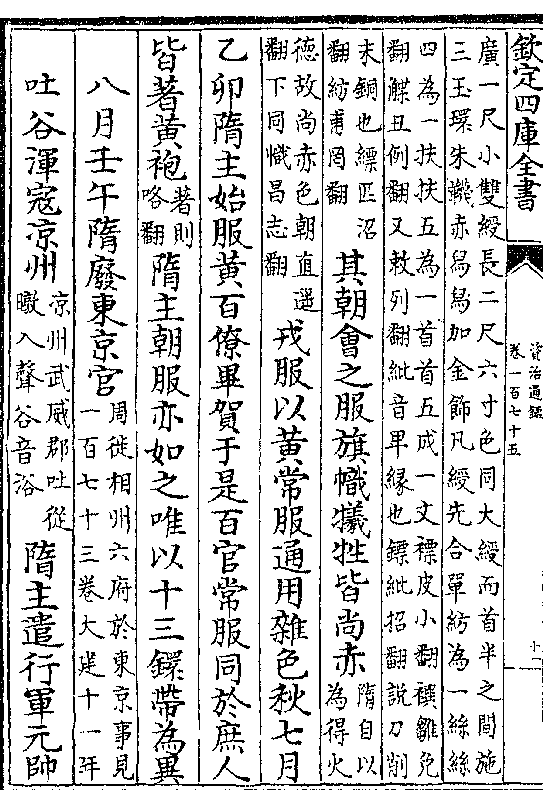 欽定四庫全書
資治通鑑
卷一百七十五
廣一尺小雙綬長二尺六寸色同大綬而首半之間施
三玉環朱韈赤舄舄加金飾凡綬先合單紡為一絲絲
四為一扶扶五為一首首五成一文褾皮小翻襈雛免
翻觶丑例翻又敕列翻紕音毘縁也鏢紕招翻說刀削
末銅也縹匹沼
翻紡甫罔翻
其朝會之服旗幟犧牲皆尚赤
隋自以
為得火
德故尚赤色朝直遥
翻下同幟昌志翻
戎服以黄常服通用雜色秋七月
乙卯隋主始服黄百僚畢賀于是百官常服同於庶人
皆著黄袍
著則
略翻
隋主朝服亦如之唯以十三鐶帶為異
八月壬午隋廢東京官
周徙相州六府於東京事見
一百七十三卷大建十一年
吐谷渾寇凉州
凉州武威郡吐從
暾入聲谷音浴
隋主遣行軍元帥